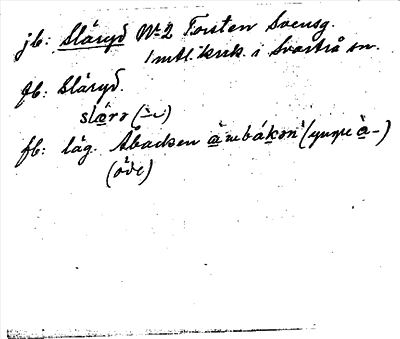 jb: Släryd Nr 2 Torsten Svensg.
1 mtl. krk. i Svartrå sn.
gb: Släryd.
slä̱rə (–̀ –)
fb: låg. Åbacken ä̱mbákən (yngre ä̱–)
(öde)